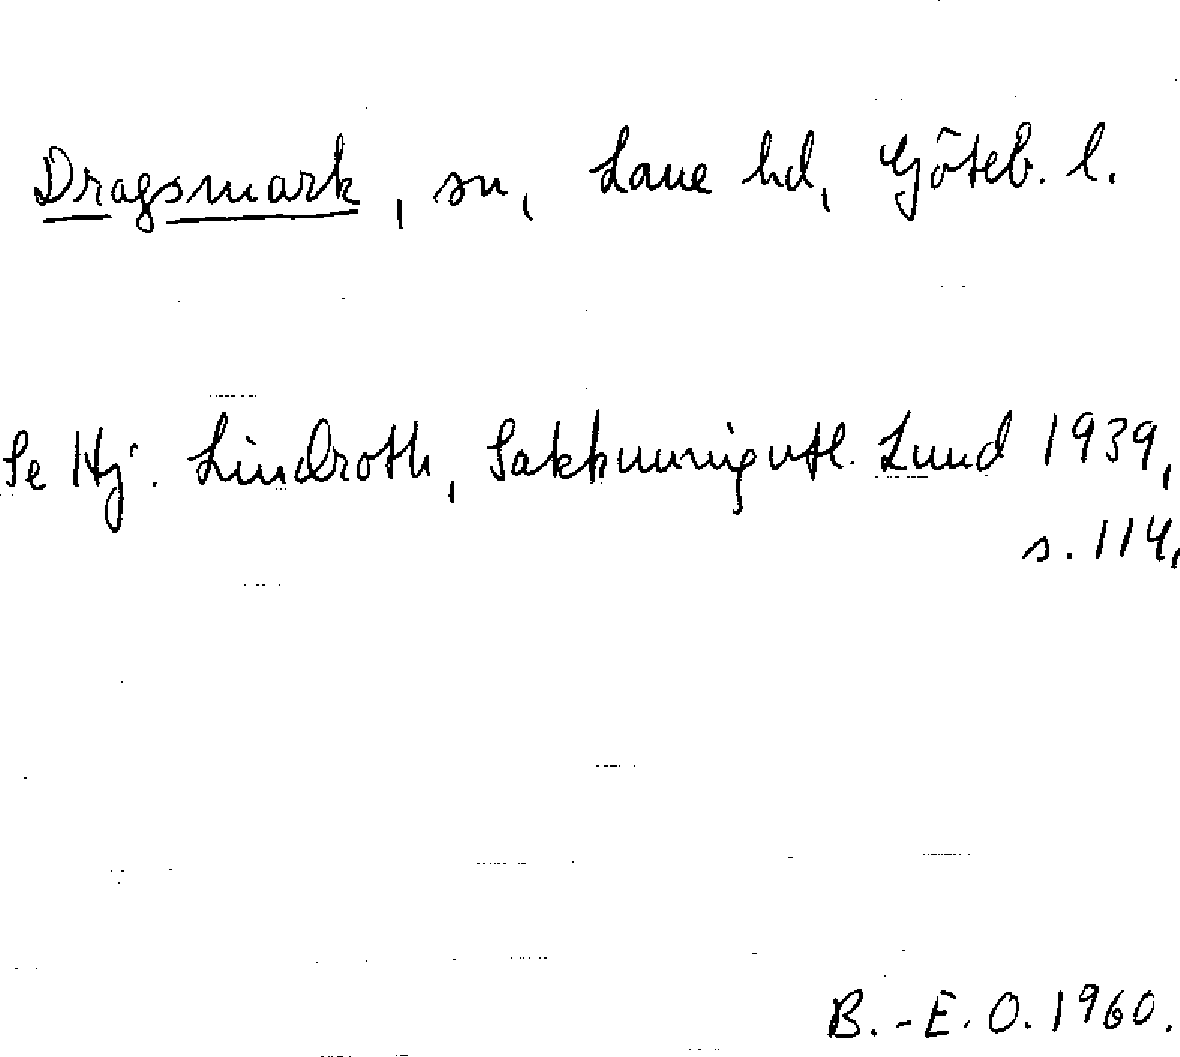 Dragsmark, sn, Lane hd, Göteb. l.
Se Hj. Lindroth, Sakkunnigutl. Lund 1939,
s. 114.
B.-E. O. 1960.